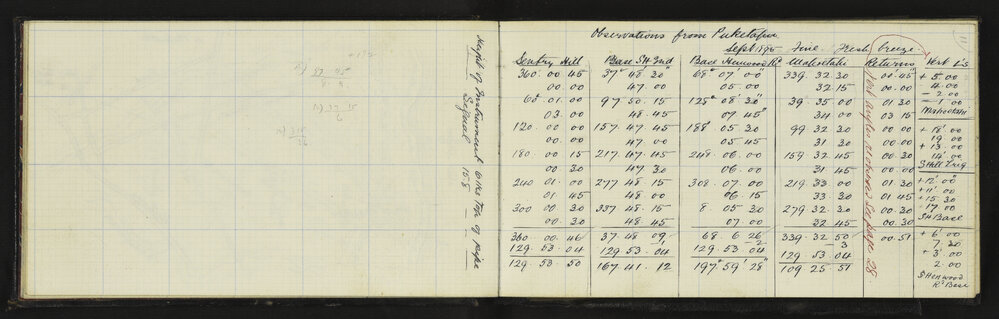 Height of Instrument 6 ins top of pipe
Signal 15.8
11
Observations from Puketapu
Sept 1905 Fine. Fresh breeze.
Sentry Hill Base SH End Base Henwood Rd Mahoetahi Returns Vert L's
360. 00 45 37° 48. 30" 68° 07' 00" 339. 32. 30 00. 45 + 5. 00
00. 00 47. 00 05. 00 32 15 00. 00 4. 00
- 2 00
60. 01. 00 97. 50. 15 128° 08' 30" 39. 35 00 01 30 - 1 00
03. 00 48. 45 07' 45" 34 00 03 15 Mahoetahi
120. 00 00 157. 47. 45 188° 05. 30 99 32 30 00. 00 + 18'. 00
00. 00 47 00 05 45 31 30 00. 00 19. 00
+ 13. 00
180. 00 15 217. 47. 45 248. 06. 00 159 32. 45 00 30 14'. 00
00 30 47 30 06. 00 31. 45 00. 00 S Hill Trig
240 01. 00 277 48. 15 308. 07. 00 219. 33 00 01 30 + 12'. 00
01. 45 48. 00 06. 15 33. 30 01 45 + 11'. 00
+ 15. 30
300 00 30 337 48. 15 8. 05. 30 279 32. 30 00. 30 - 17. 00
00. 30 48. 45 07. 00 32 45 00. 30 SH Base
360. 00. 46 37. 48 09 68 6 26 339. 32 50 00. 51 + 6'. 00
1 2 3 7. 30
129. 53. 04 129. 53. 04 129. 53. 04 129 53 04 + 3'. 00
129. 53. 50 167. 41. 12 197° 59' 28" 109 25. 51 2. 00
S Henwood
Rd Base
Vert angles as observed See page 28.